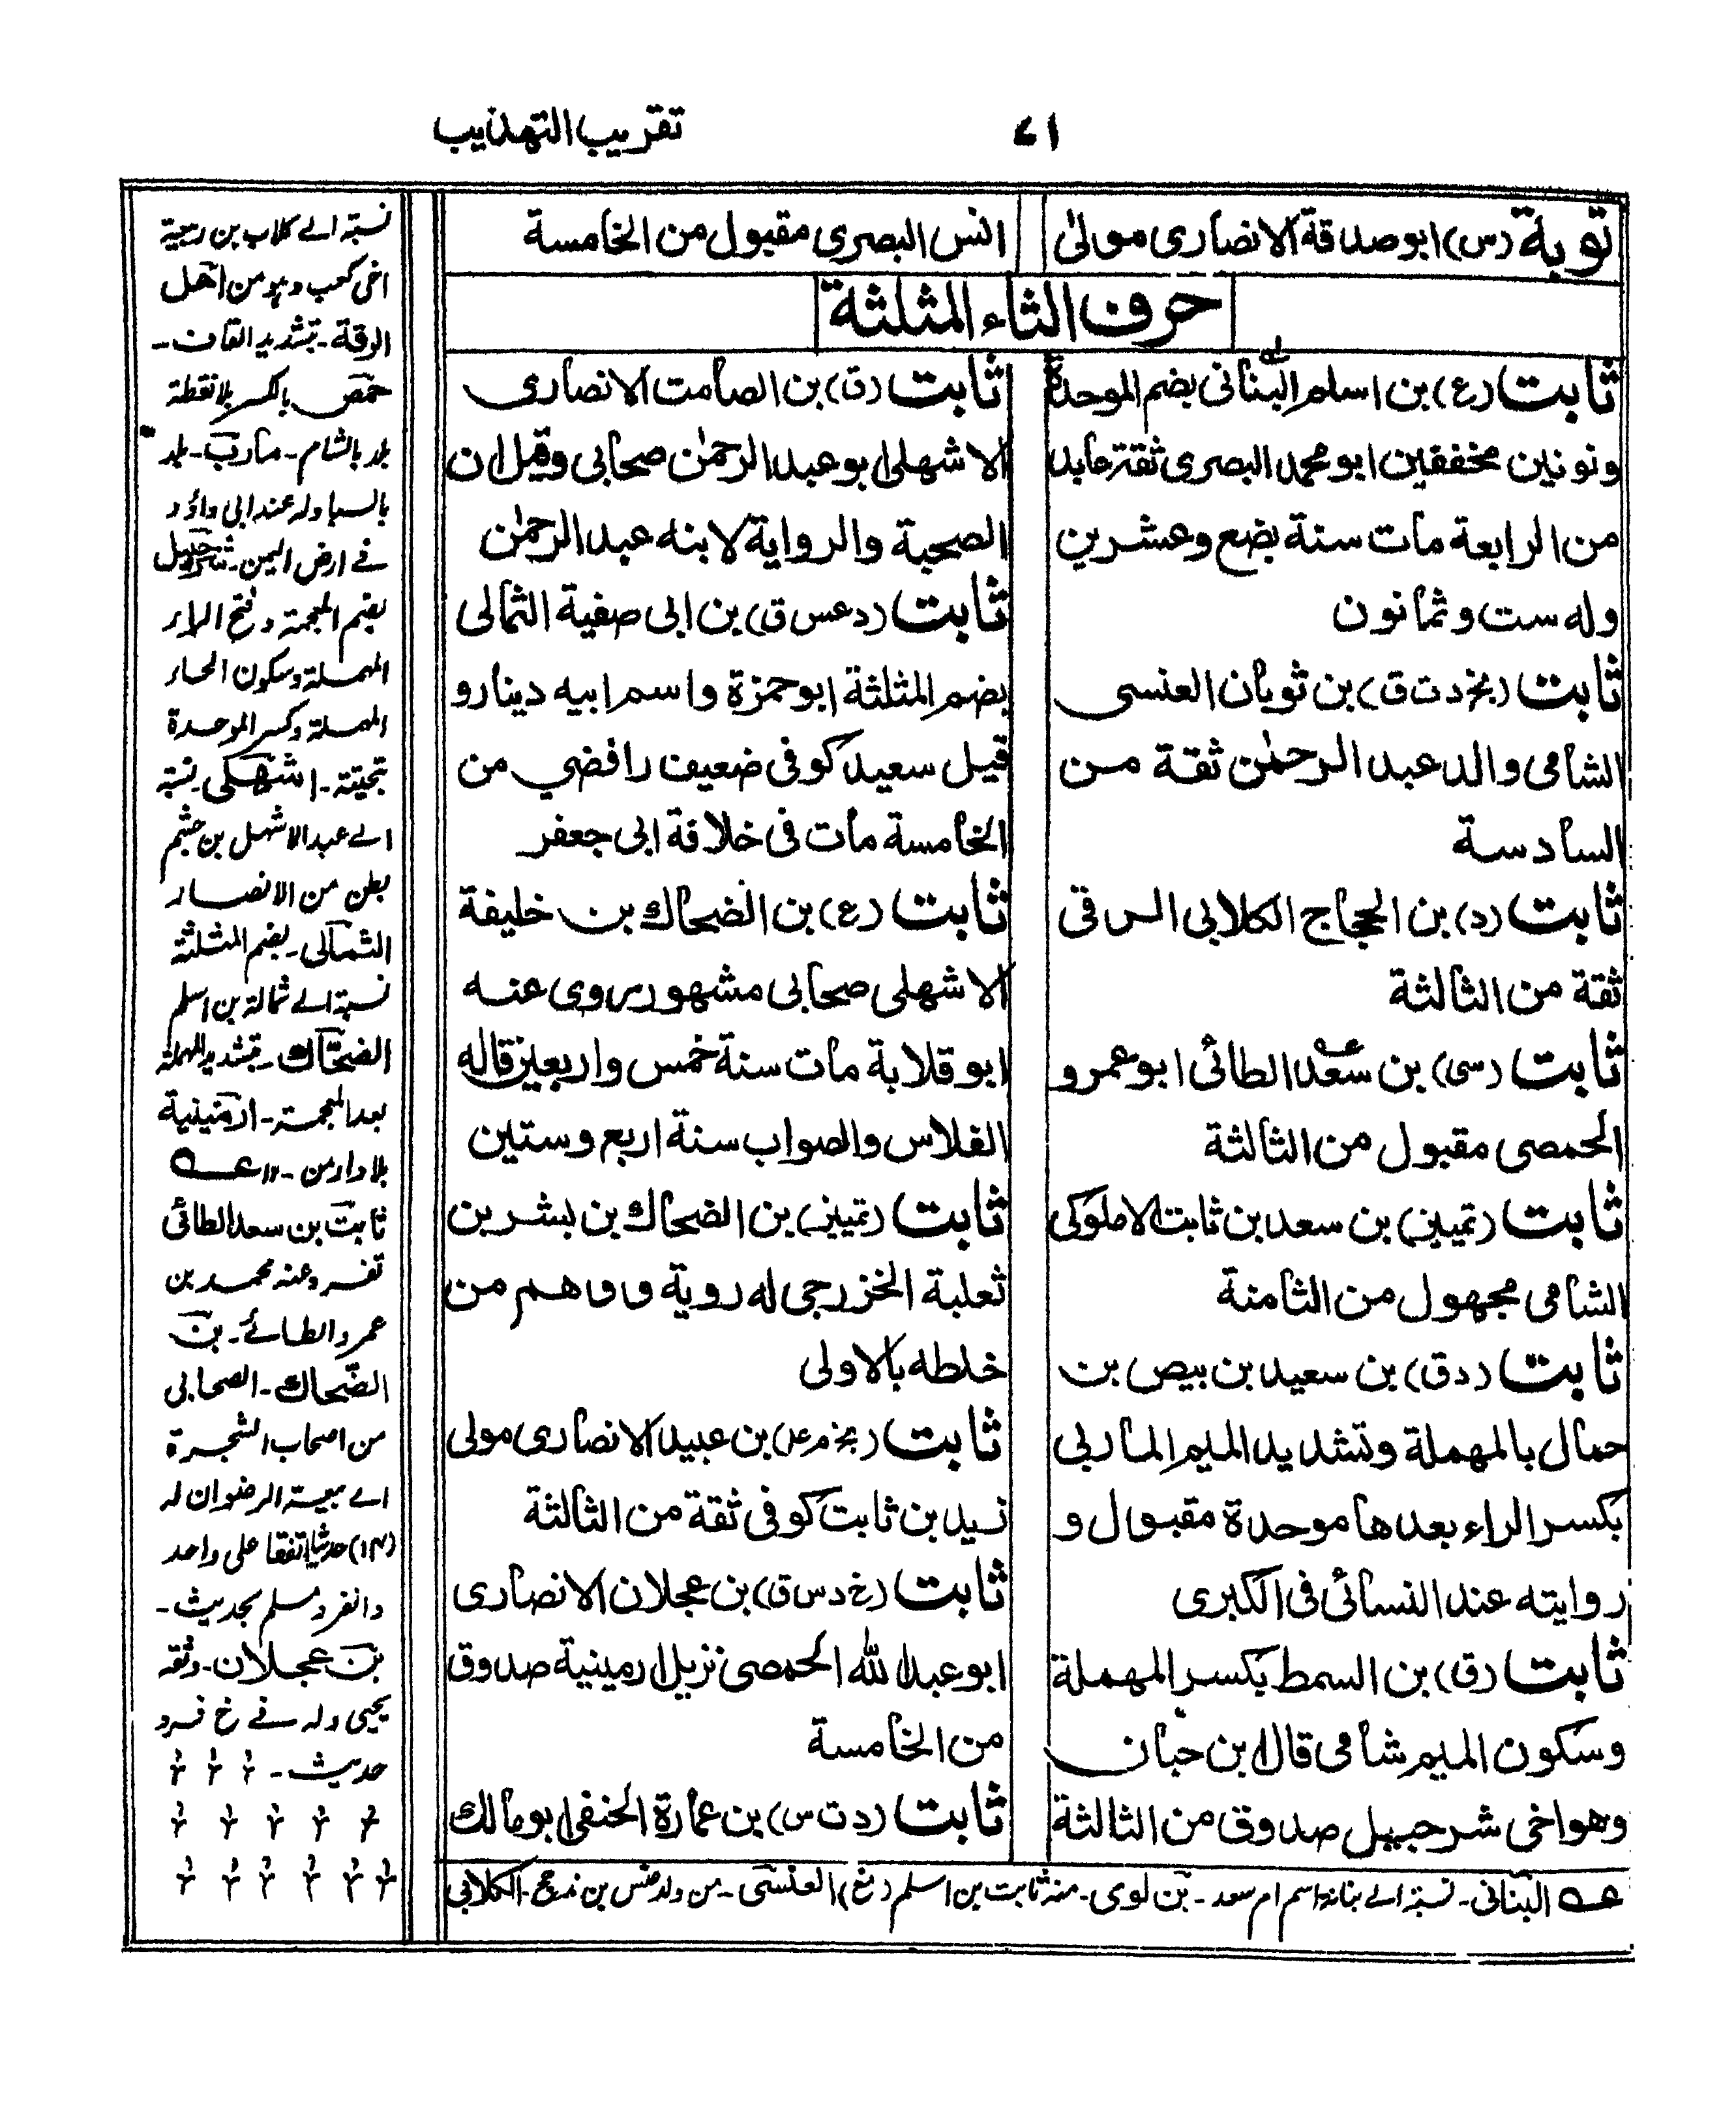 ٧١
تقريب التهذيب
توبة (س) ابو صدقة الانصارى مولى
انس البصرى مقبول من الخامسة
حرف الثاء المثلثة
ثابت (ع) بن اسلم البنانى بضم الموحدة
ونونين مخففين ابو محمد البصرى ثقة عابد
من الرابعة مات سنة بضع وعشرين
وله ست وثمانون
ثابت (بخ د ت ق) بن ثوبان العنسى
الشامى والد عبد الرحمٰن ثقة من
السادسة
ثابت (د) بن الحجاج الكلابى الرقى
ثقة من الثالثة
ثابت (سى) بن سعد الطائى ابو عمرو
الحمصى مقبول من الثالثة
ثابت (تمييز) بن سعد بن ثابت الاملوكى
الشامى مجهول من الثامنة
ثابت (د ق) بن سعيد بن بيض بن
حمال بالمهملة وتشديد الميم المأربى
بكسر الراء بعدها موحدة مقبول و
روايته عند النسائى فى الكبرى
ثابت (ق) بن السمط بكسر المهملة
وسكون الميم شامى قال ابن حبان
وهو اخى شرحبيل صدوق من الثالثة
ثابت (ق) بن الصامت الانصارى
الاشهلى ابو عبد الرحمٰن صحابى وقيل ان
الصحبة والرواية لابنه عبد الرحمٰن
ثابت (د عس ق) بن ابى صفية الثمالى
بضم المثلثة ابو حمزة واسم ابيه دينار و
قيل سعيد كوفى ضعيف رافضي من
الخامسة مات فى خلافة ابى جعفر
ثابت (ع) بن الضحاك بن خليفة
الاشهلى صحابى مشهور روى عنه
ابو قلابة مات سنة خمس واربعين قاله
الفلاس والصواب سنة اربع وستين
ثابت (تمييز) بن الضحاك بن بشر بن
ثعلبة الخزرجى له روية ووهم من
خلطه بالاولى
ثابت (بخ م عد) بن عبيد الانصارى مولى
زيد بن ثابت كوفى ثقة من الثالثة
ثابت (خ د س ق) بن عجلان الانصارى
ابو عبد الله الحمصى نزيل ارمينية صدوق
من الخامسة
ثابت (د ت س) بن عمارة الحنفى ابو مالك
عه البنانى۔ نسبة الے بنانة اسم ام سعد۔ بن لوى۔ منه ثابت بن اسلم (نغ) العنسى۔ من ولد عنس بن مذحج۔ الكلابى
نسبة الے كلاب بن ربيعة
اخى كعب وهو من اهل
الرقة۔ بتشديد القاف۔
حمص بالكسر بلا نقطة
بلد بالشام۔ مأرب۔ بلد
بالسبا وله عند ابى داؤد
فے ارض اليمن۔ شرحبيل
بضم المعجمة وفتح الراء
المهملة وسكون الحاء
المهملة وكسر الموحدة
تحيتة۔ اشهلى نسبة
الے عبد الاشهل بن جشم
بطن من الانصار
الثمالى۔ بضم المثلثة
نسبة الے ثمالة بن اسلم
الضحاك۔ بتشديد المهملة
بعد المعجمة۔ ارمينية
بلاد ارمن۔ ١٢ عه
ثابت بن سعد الطائى
تفرد عنه محمد بن
عمرو الطائے۔ بن
الضحاك۔ الصحابى
من اصحاب الشجرة
اے بيعة الرضوان له
(١٤) حديثا اتفقا على واحد
وانفرد مسلم بحديث۔
بن عجلان۔ وثقه
يحيى وله فے خ فرد
حديث۔